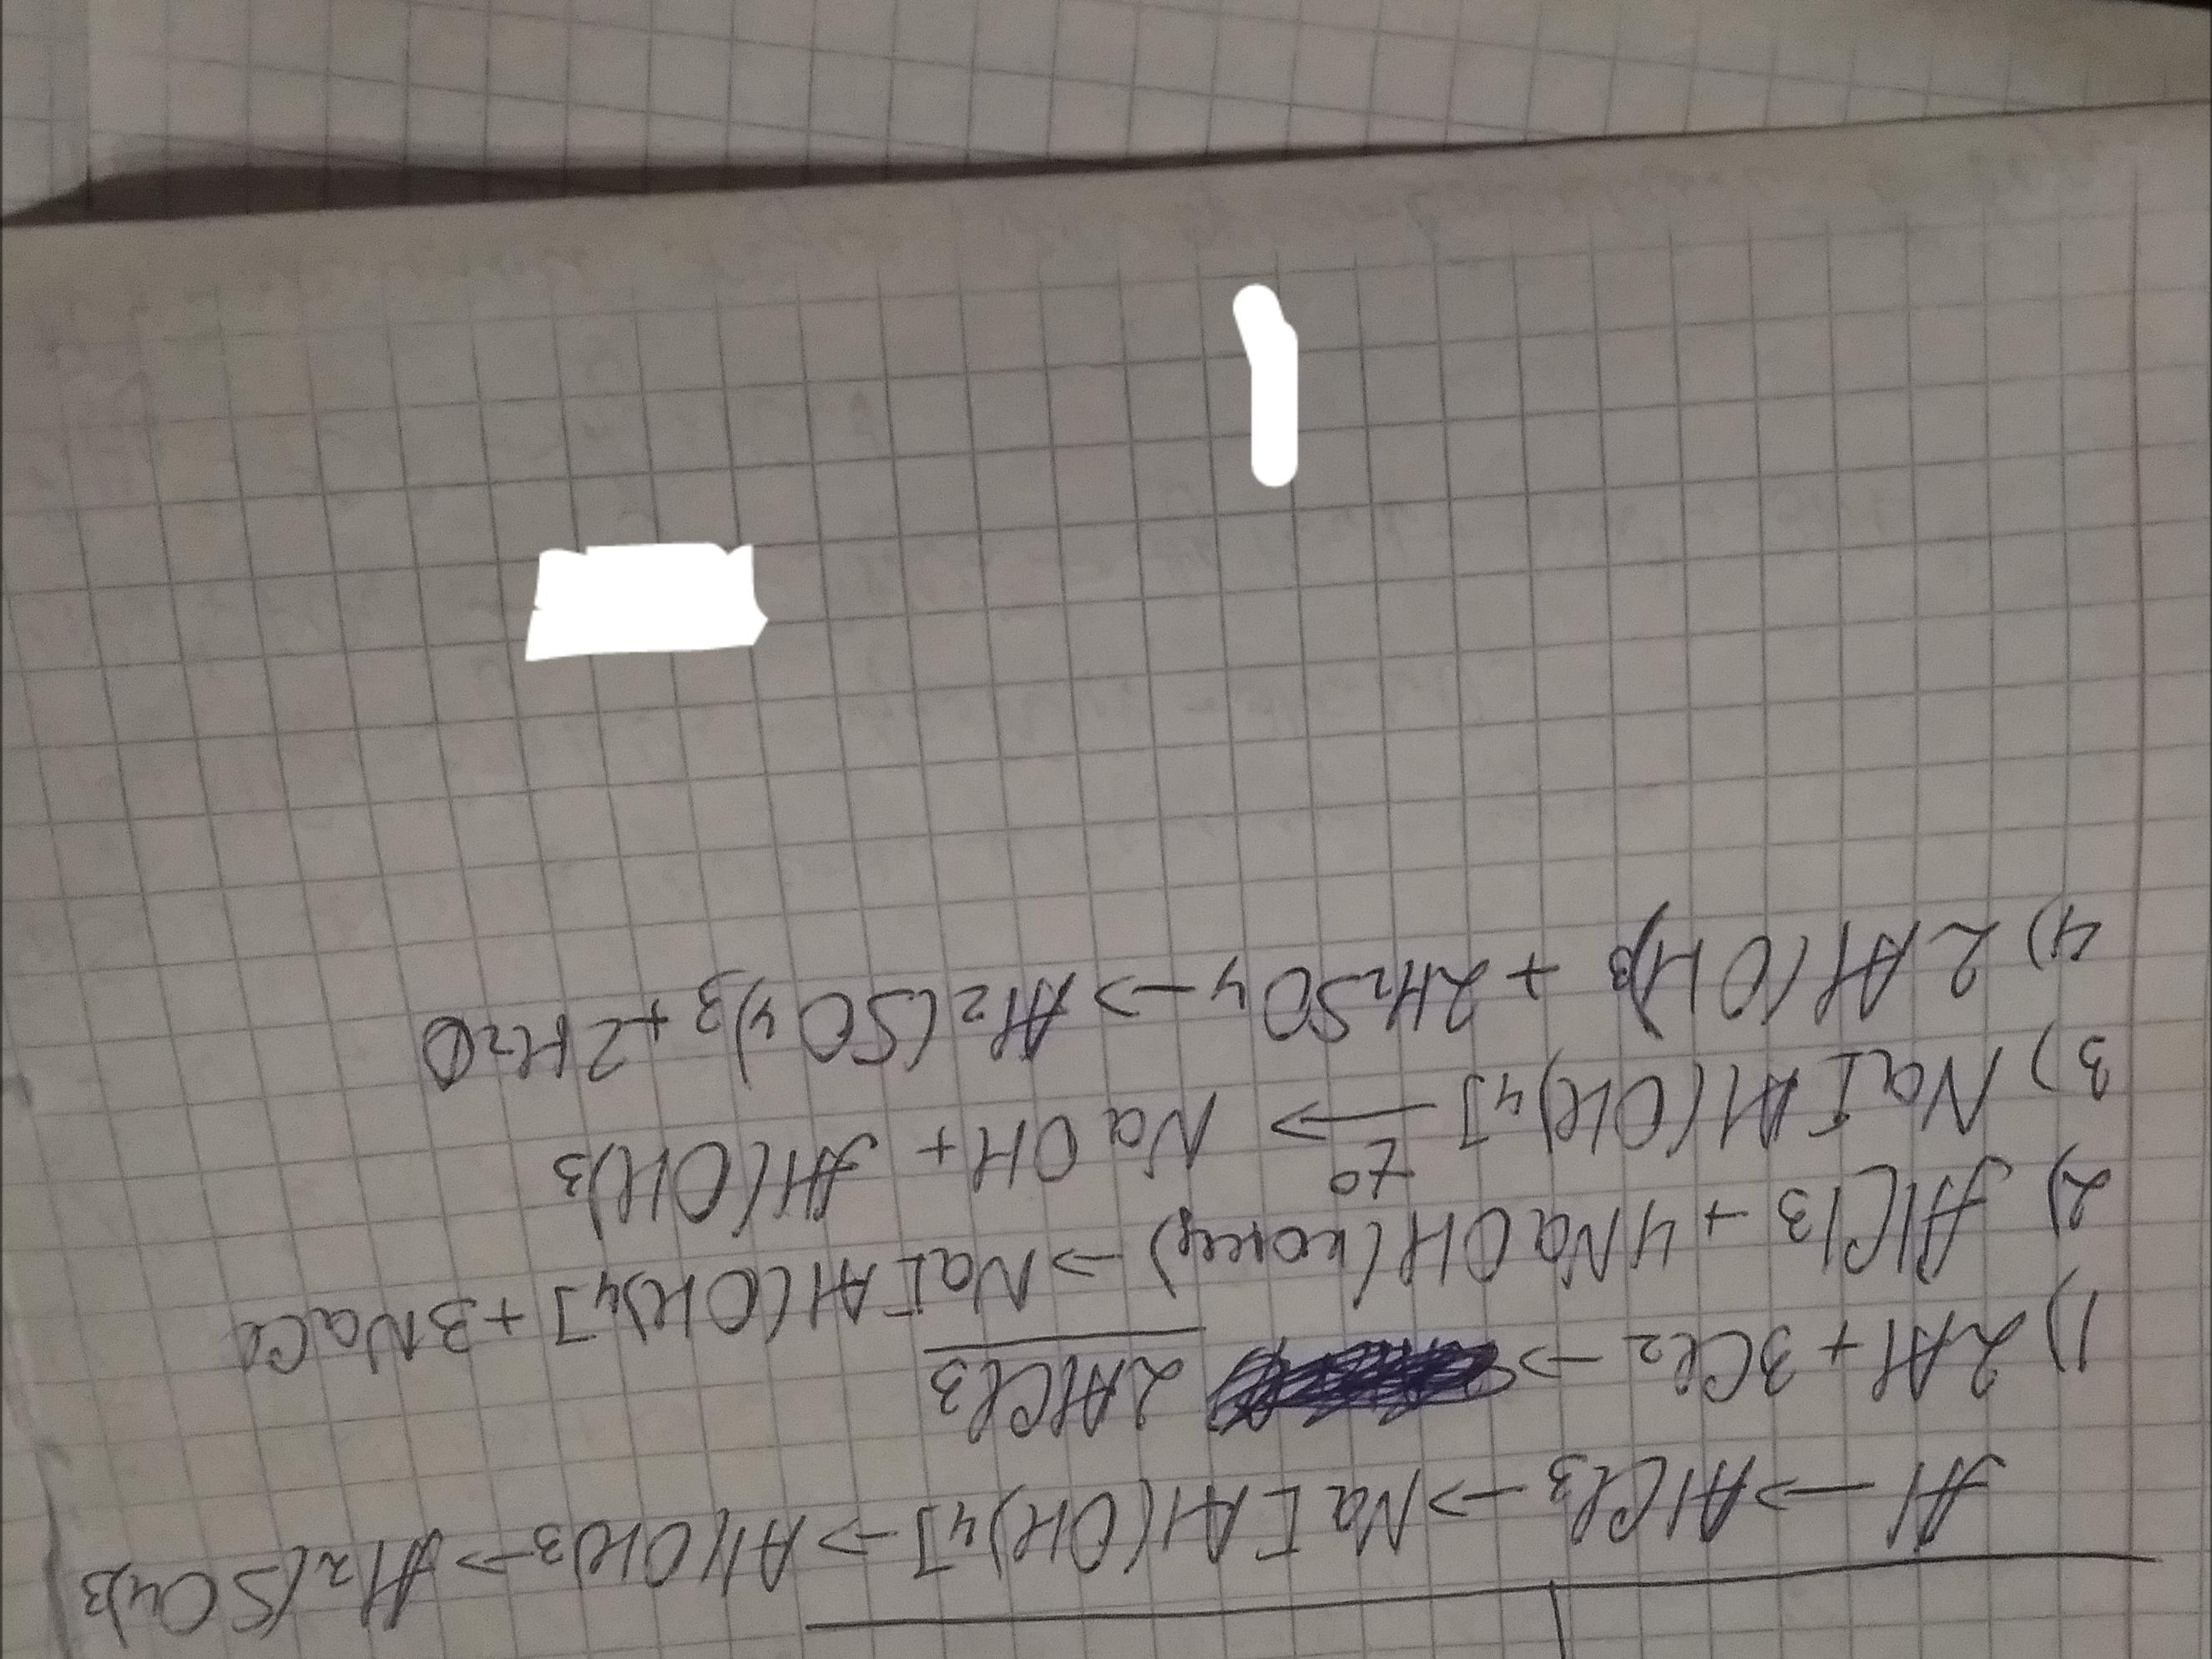 Al → AlCl3 → Na[Al(OH)4] → Al(OH)3 → Al2(SO4)3
1) 2Al + 3Cl2 → 2AlCl3
2) AlCl3 + 4NaOH(конц) → Na[Al(OH)4] + 3NaCl
3) Na[Al(OH)4] t° → NaOH + Al(OH)3
4) 2Al(OH)3 + 2H2SO4 → Al2(SO4)3 + 2H2O